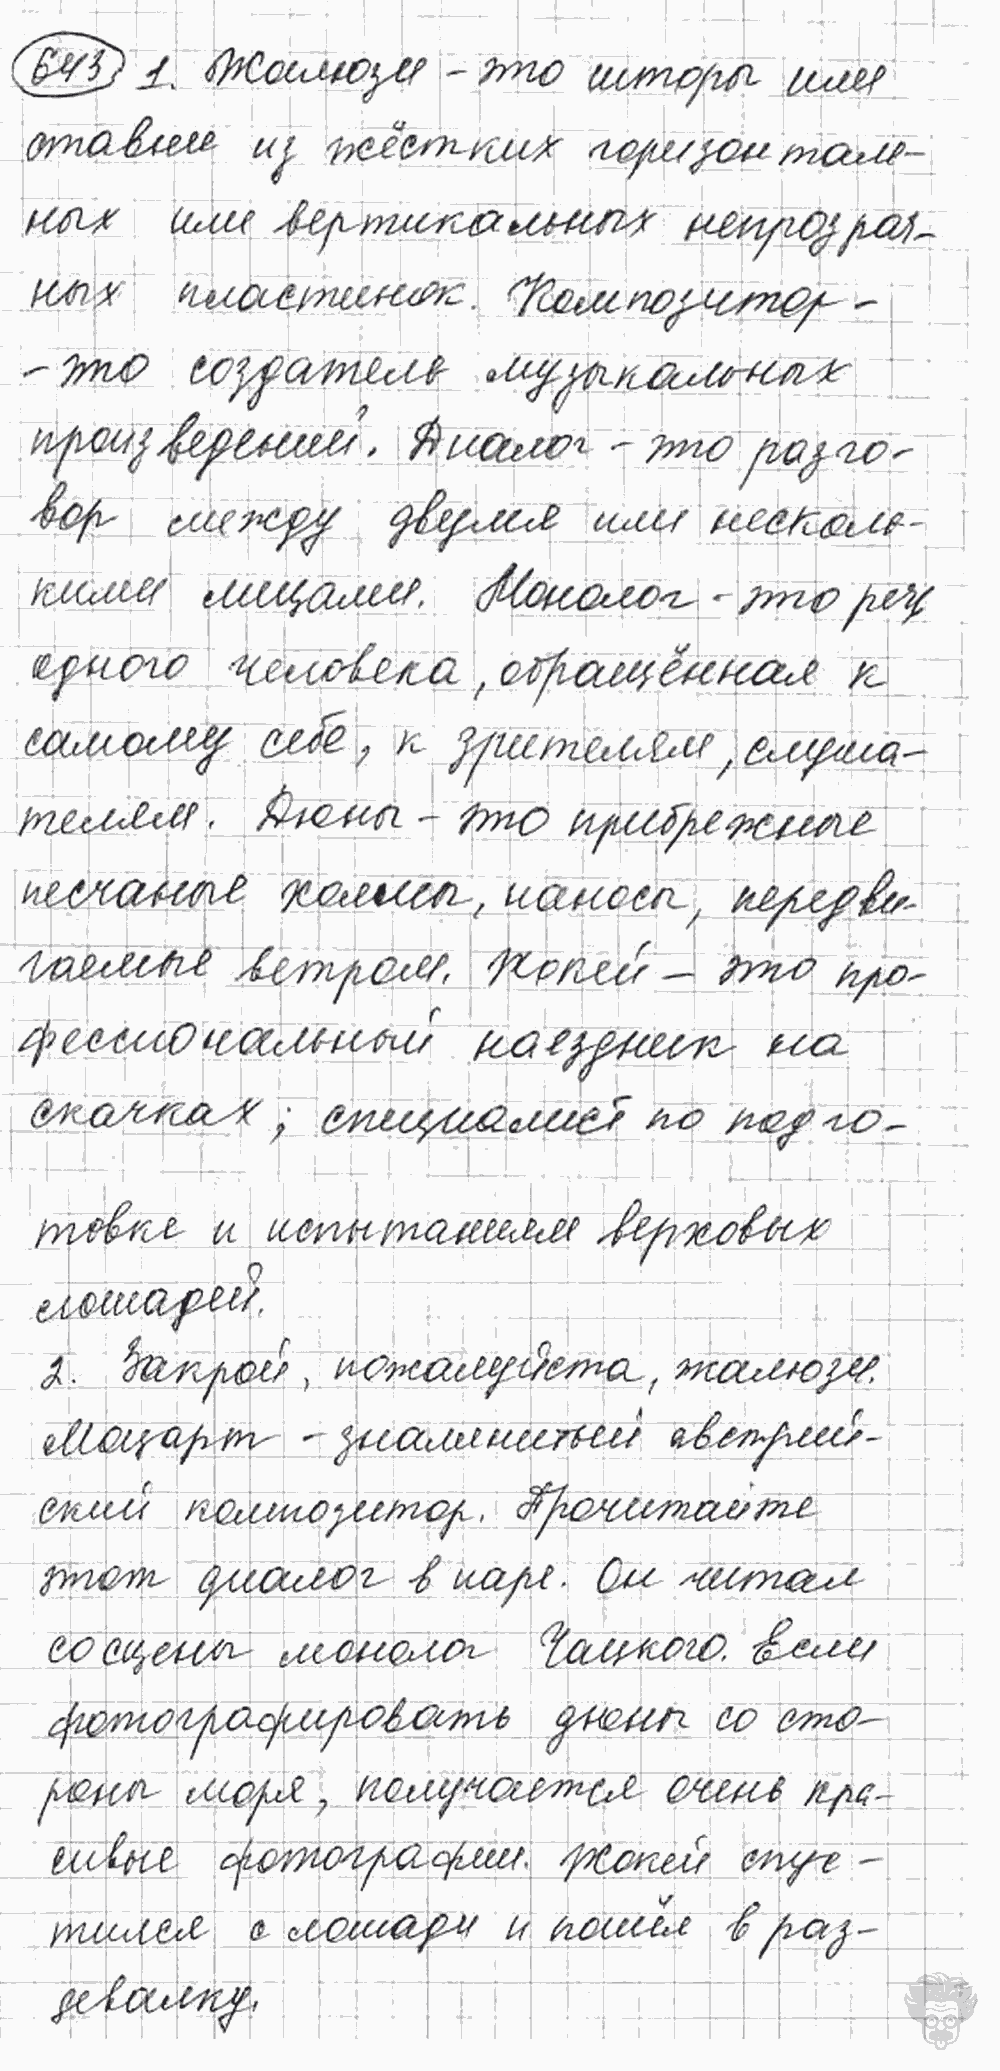 643 1. Жалюзи – это шторы или
ставни из жёстких горизонталь-
ных или вертикальных непрозрач-
ных пластинок. Композитор –
– это создатель музыкальных
произведений. Диалог – это разго-
вор между двумя или несколь-
кими лицами. Монолог – это речь
одного человека, обращённая к
самому себе, к зрителям, слуша-
телям. Дюны – это прибрежные
песчаные холмы, наносы, передви-
гаемые ветром. Жокей – это про-
фессиональный наездник на
скачках; специалист по подго-
товке и испытаниям верховых
лошадей.
2. Закрой, пожалуйста, жалюзи.
Моцарт – знаменитый австрий-
ский композитор. Прочитайте
этот диалог в паре. Он читал
со сцены монолог Чацкого. Если
фотографировать дюны со сто-
роны моря, получается очень кра-
сивые фотографии. Жокей спус-
тился с лошади и пошёл в раз-
девалку.